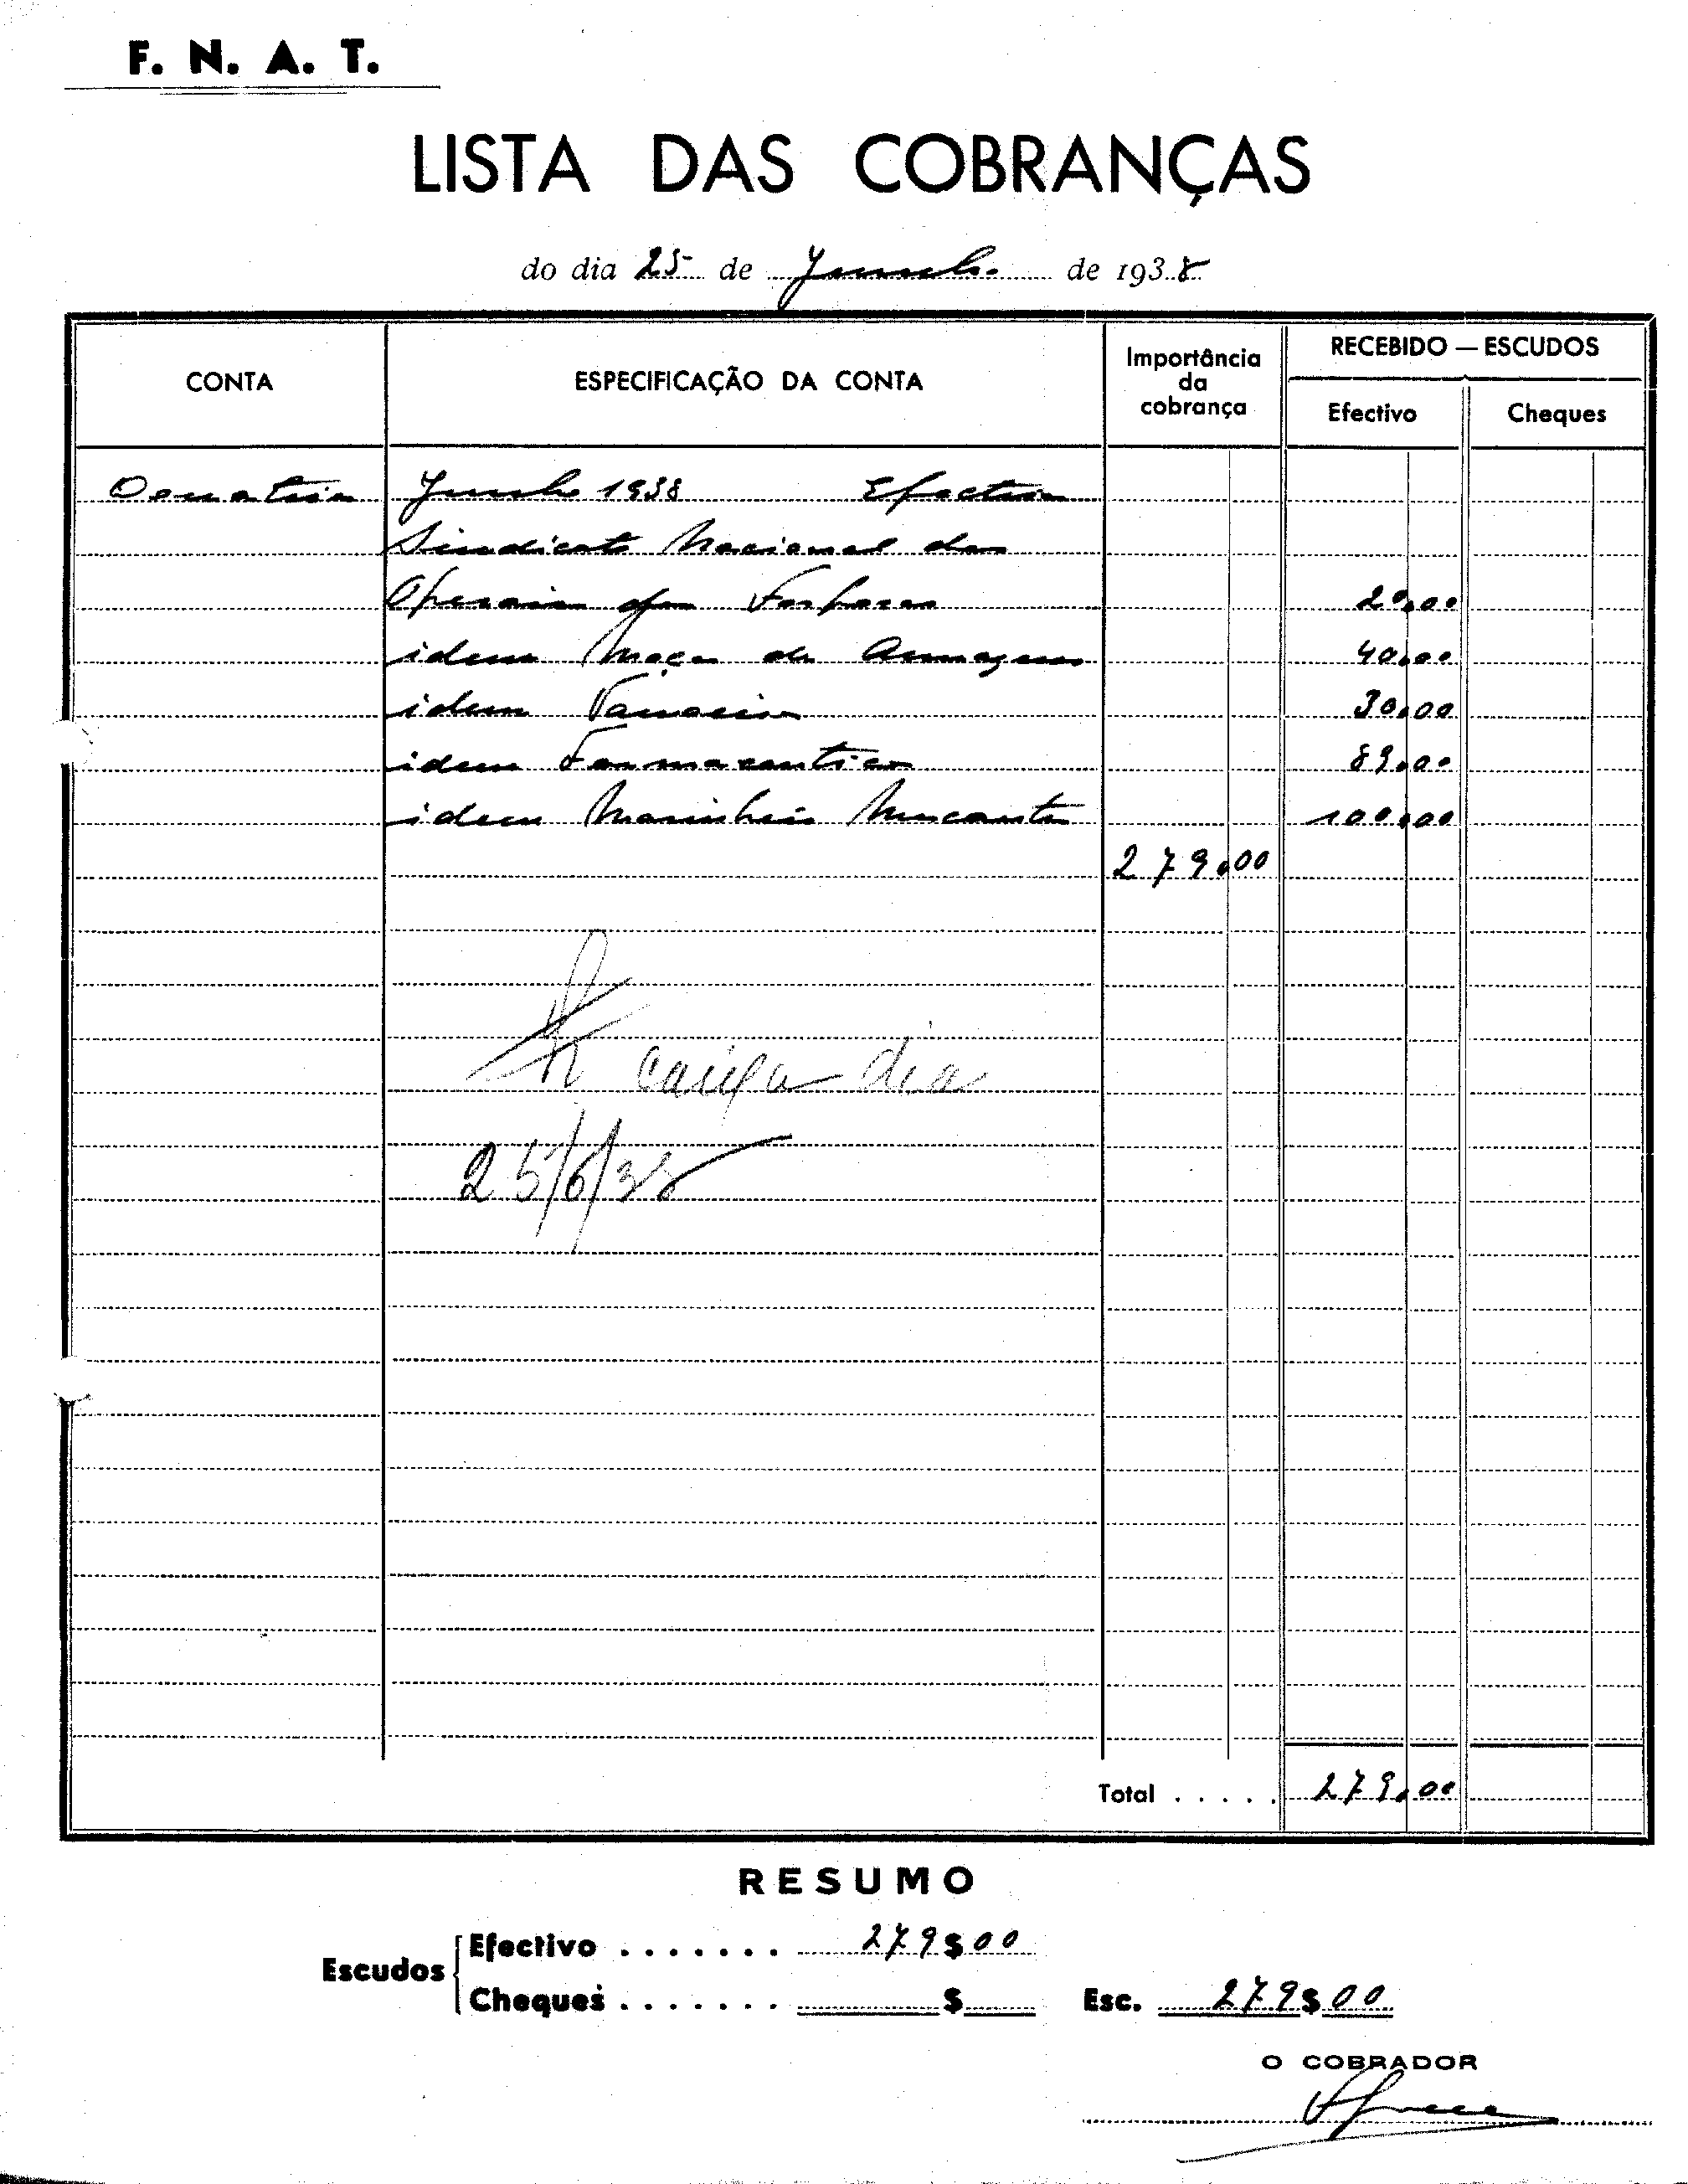 F. N. A. T.
LISTA DAS COBRANÇAS
do dia 25 de Junho de 1938
CONTA
ESPECIFICAÇÃO DA CONTA
Importância
da
cobrança
RECEBIDO — ESCUDOS
Efectivo
Cheques
Junho 1938 Efectivo
Sindicato Nacional dos
20.00
idem de 40.00
idem 30.00
idem Farmaceuticos 89.00
idem 100.00
279.00
dia
25/6/38
Total ..... 279.00
RESUMO
Escudos
Efectivo ....... 279$00
Cheques ....... $
Esc. 279$00
O COBRADOR